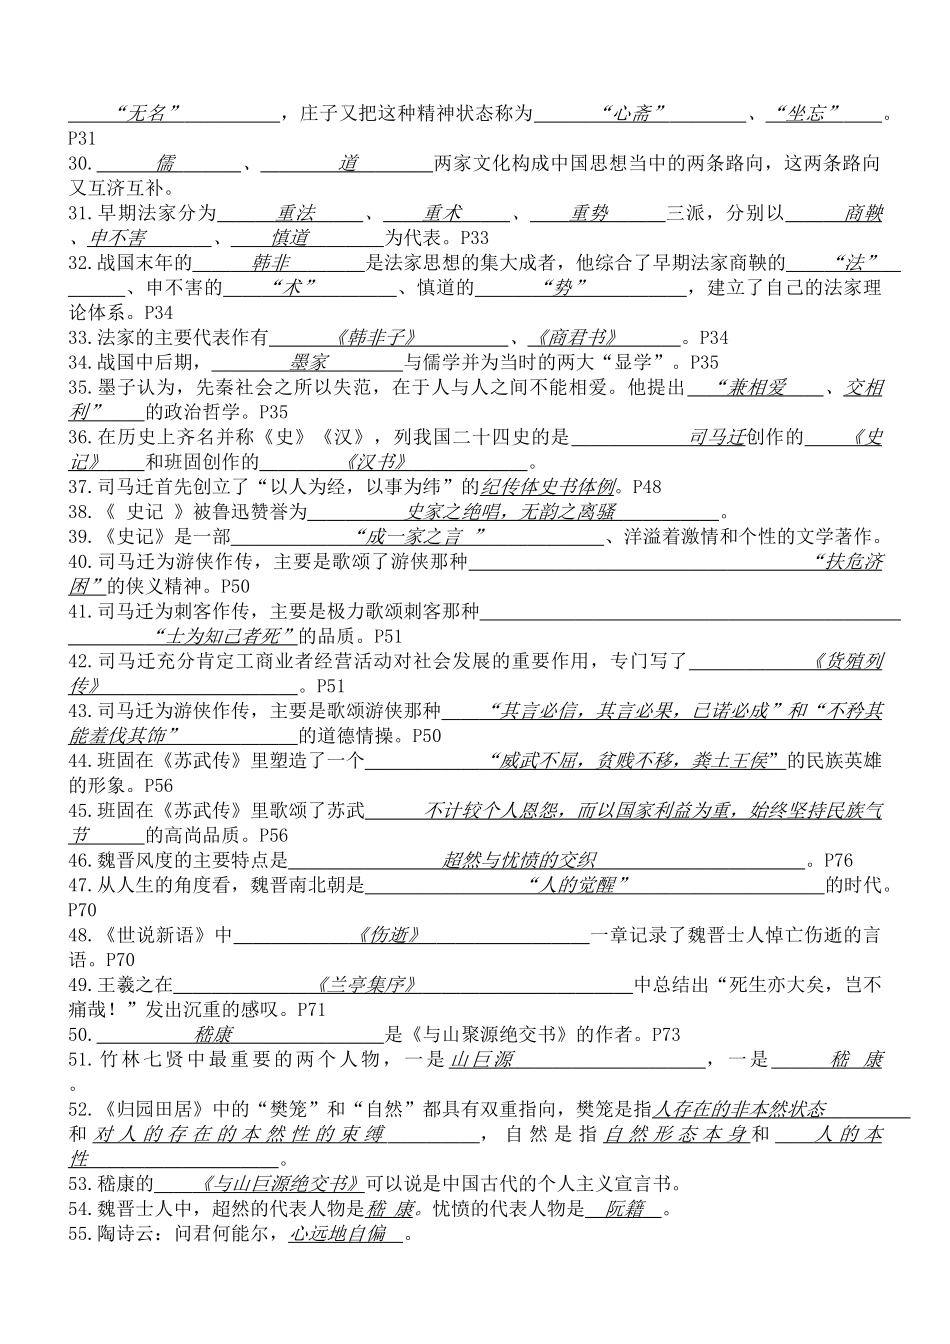 “无名”，庄子又把这种精神状态称为“心斋”、“坐忘”。
P31
30.儒、道两家文化构成中国思想当中的两条路向，这两条路向
又互济互补。
31.早期法家分为重法、重术、重势三派，分别以商鞅
、申不害、慎道为代表。P33
32.战国末年的韩非是法家思想的集大成者，他综合了早期法家商鞅的“法”
、申不害的“术”、慎道的“势”，建立了自己的法家理
论体系。P34
33.法家的主要代表作有《韩非子》、《商君书》。P34
34.战国中后期，墨家与儒学并为当时的两大“显学”。P35
35.墨子认为，先秦社会之所以失范，在于人与人之间不能相爱。他提出“兼相爱、交相
利”的政治哲学。P35
36.在历史上齐名并称《史》《汉》，列我国二十四史的是司马迁创作的《史
记》和班固创作的《汉书》。
37.司马迁首先创立了“以人为经，以事为纬”的纪传体史书体例。P48
38.《 史记 》被鲁迅赞誉为史家之绝唱，无韵之离骚。
39.《史记》是一部“成一家之言 ”、洋溢着激情和个性的文学著作。
40.司马迁为游侠作传，主要是歌颂了游侠那种“扶危济
困”的侠义精神。P50
41.司马迁为刺客作传，主要是极力歌颂刺客那种
“士为知己者死”的品质。P51
42.司马迁充分肯定工商业者经营活动对社会发展的重要作用，专门写了《货殖列
传》。P51
43.司马迁为游侠作传，主要是歌颂游侠那种“其言必信，其言必果，已诺必成”和“不矜其
能羞伐其饰”的道德情操。P50
44.班固在《苏武传》里塑造了一个“威武不屈，贫贱不移，粪土王侯”的民族英雄
的形象。P56
45.班固在《苏武传》里歌颂了苏武不计较个人恩怨，而以国家利益为重，始终坚持民族气
节的高尚品质。P56
46.魏晋风度的主要特点是超然与忧愤的交织。P76
47.从人生的角度看，魏晋南北朝是“人的觉醒”的时代。
P70
48.《世说新语》中《伤逝》一章记录了魏晋士人悼亡伤逝的言
语。P70
49.王羲之在《兰亭集序》中总结出“死生亦大矣，岂不
痛哉！”发出沉重的感叹。P71
50.嵇康是《与山聚源绝交书》的作者。P73
51.竹林七贤中最重要的两个人物，一是山巨源，一是嵇 康
。
52.《归园田居》中的“樊笼”和“自然”都具有双重指向，樊笼是指人存在的非本然状态
和对人的存在的本然性的束缚，自然是指自然形态本身和人的本
性。
53.嵇康的《与山巨源绝交书》可以说是中国古代的个人主义宣言书。
54.魏晋士人中，超然的代表人物是嵇 康。忧愤的代表人物是阮籍。
55.陶诗云：问君何能尔，心远地自偏。